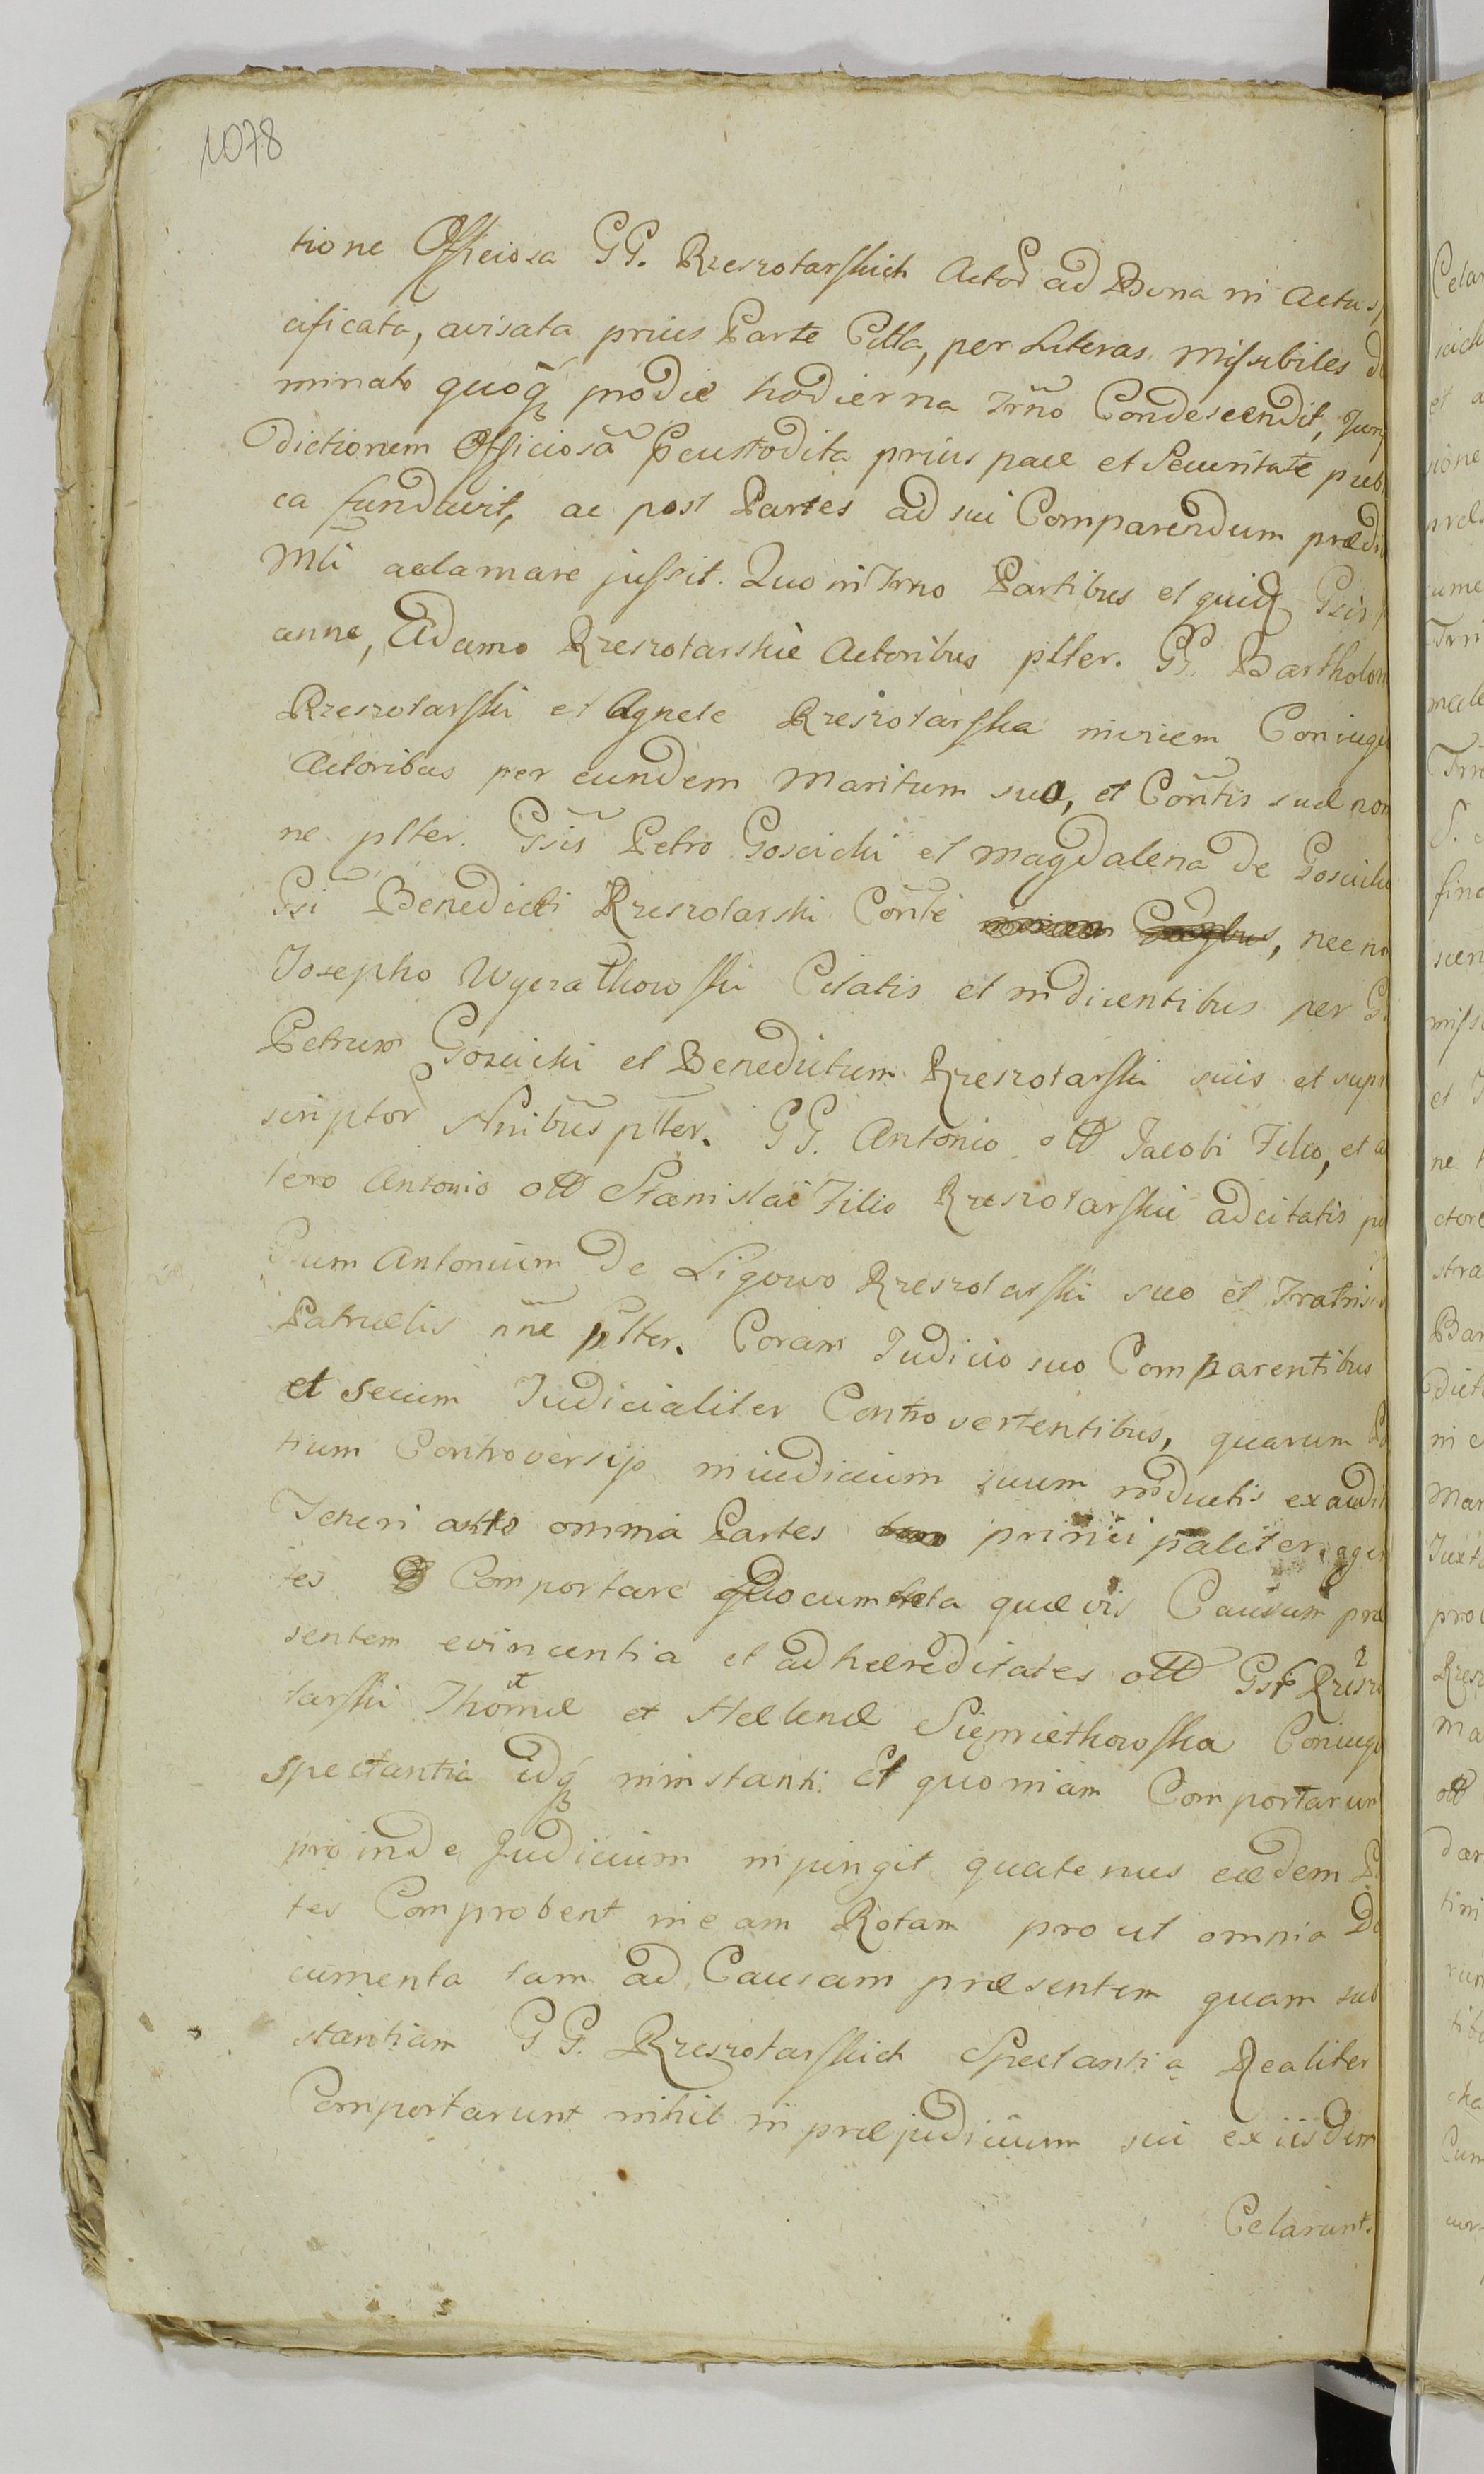 1078
tione Officiosa GG. Rzeszotarskich Actor ad Bona in Actu
cificata, avisata prius Parte Citta, per Literas missibiles
minato quoq prodie hodierna Trno Condescendit, Juris
dictionem Officiosa pcustodita prius pace et Securitate pub
ca fundavit, ac post Partes ad sui Comparendum prædi
Mli aclamare jussit. Quo in Trno Partibus et quidq Gsis
anne, Adamo Rzeszotarskie Actoribus plter. GG. Bartholom
Rzeszotarski et Agnete Rzeszotarska invicem Coniuge
Actoribus per eundem Maritum suo, et Contis suæ nom
ne plter. Gsis Petro Goscicki et Magdalena de Goscickie
Gsi Benedicti Rzeszotarski Conte, nec no
Josepho Wyczalkowski Citatis et indicentibus per G
Petrum Goscicki et Benedictum Rzeszotarski suis et supra
scriptor Nnibus plter. GG. Antonio ott Jacobi Filio, et al
tero Antonio ott Stanislai Filio Rzeszotarskie adcitatis pe
Gsum Antonium de Ligowo Rzeszotarski suo et Fratris
Patruelis nne plter. Coram Judicio suo Comparentibus
et secum Judicialiter Controvertentibus, quarum Pa
tium Controversijs in iudicium suum inductis exaudit
Teneri ante omnia Partes principaliter agen
tes Comportare Documenta quævis Causam præ
sentem evincentia et ad hæreditates ott Gsi Rzeszo
tarski Thomæ et Hellenæ Sięmietkowska Coniuge
spectantia idq ininstanti. Et quoniam Comportarun
proinde Judicium inpingit quatenus eædem P
tes Comprobent in eam Rotam pro ut omnia Do
cumenta tam ad Causam præsentem quam sub
stantiam GG. Rzeszotarskich Spectantia Realiter
Comportarunt nihil in præjudicium sui ex iisdem
Celarunt